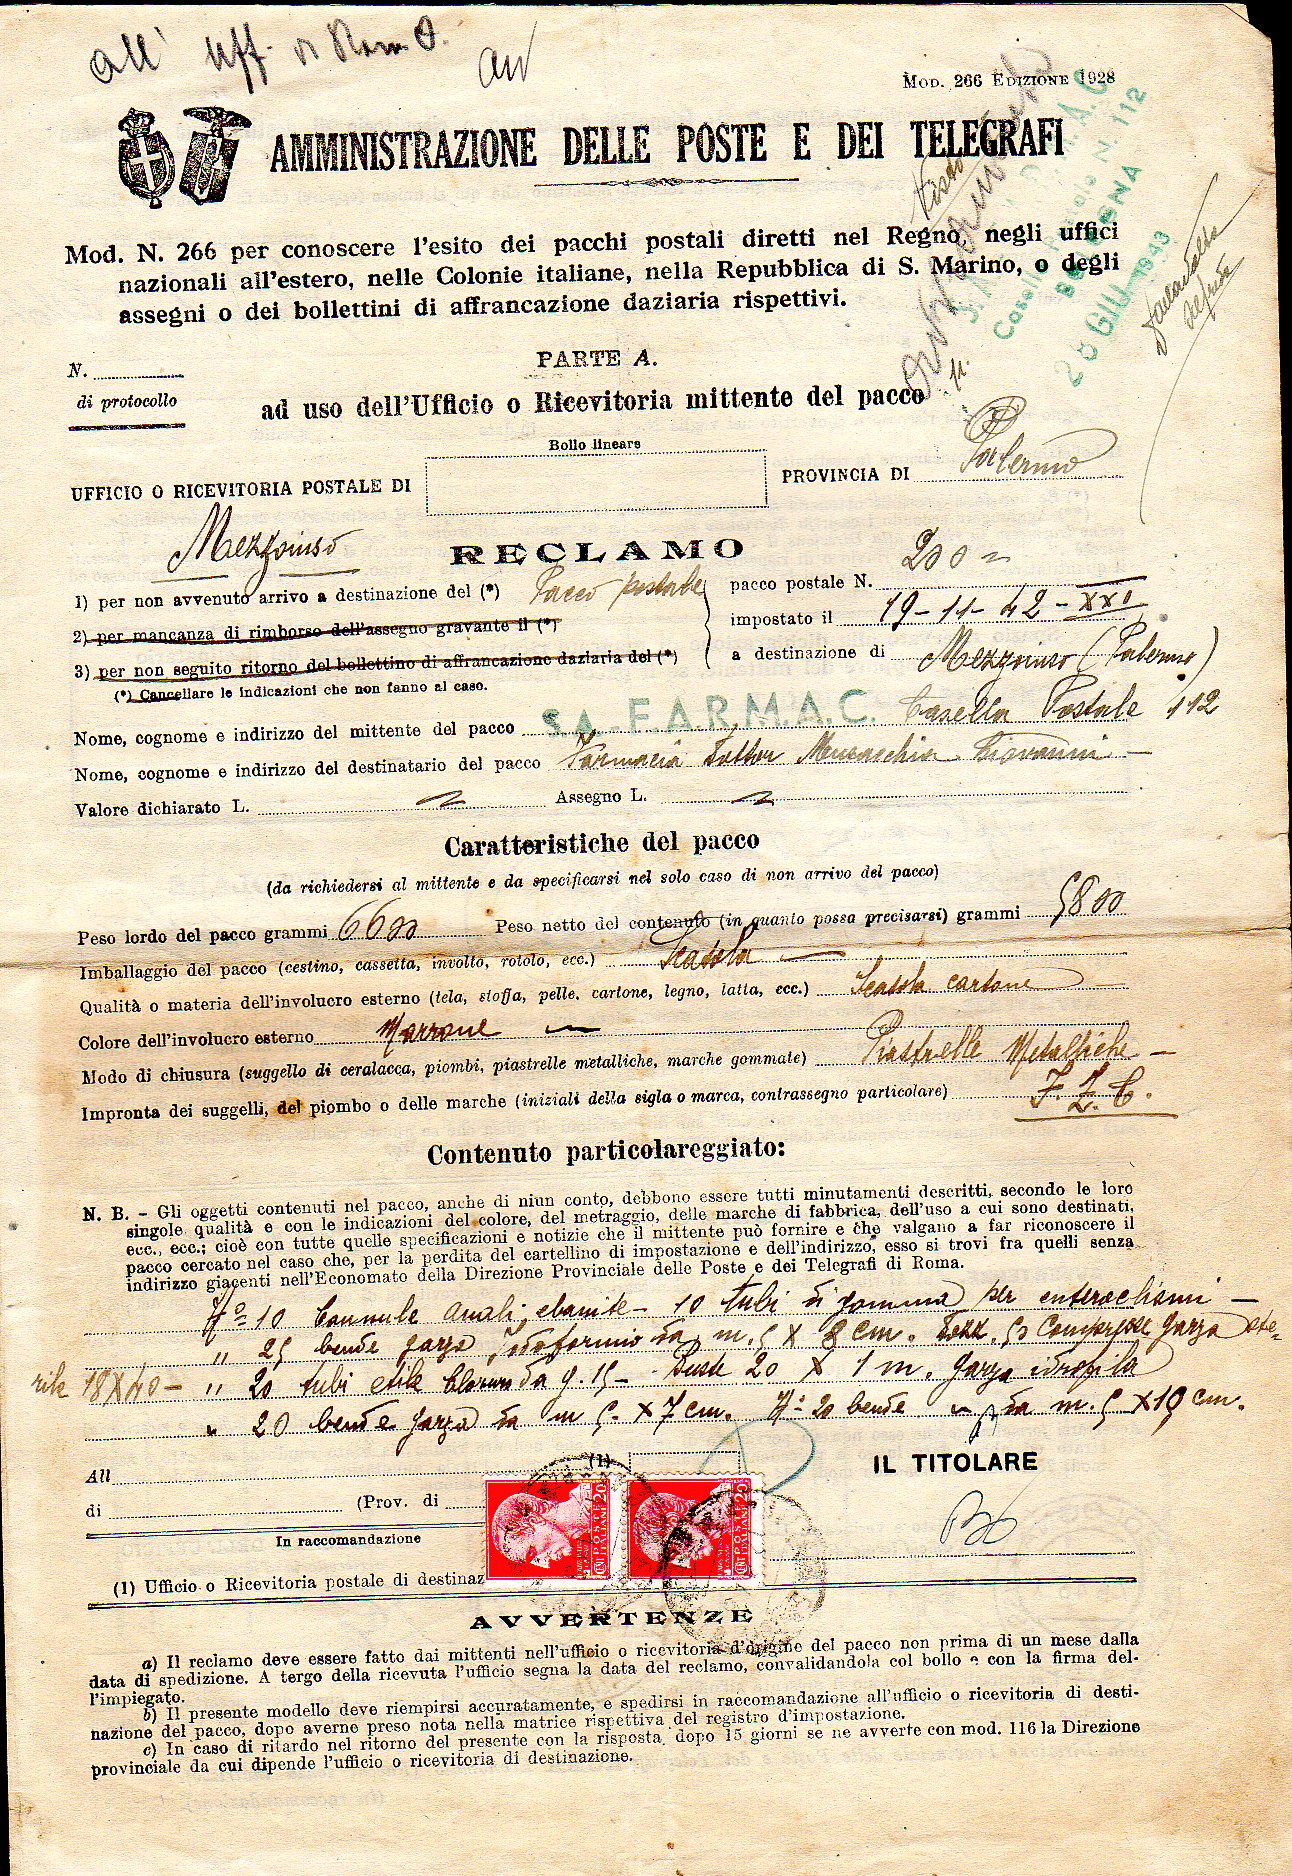 all' Uff. di Roma
MOD. 266 EDIZIONE 1928
AMMINISTRAZIONE DELLE POSTE E DEI TELEGRAFI
Visto
Casella Postale N. 112
BOLOGNA
28 GIU 1943
Mod. N. 266 per conoscere l'esito dei pacchi postali diretti nel Regno, negli uffici
nazionali all'estero, nelle Colonie italiane, nella Repubblica di S. Marino, o degli
assegni o dei bollettini di affrancazione daziaria rispettivi.
N.
di protocollo
PARTE A.
ad uso dell'Ufficio o Ricevitoria mittente del pacco
Bollo lineare
UFFICIO O RICEVITORIA POSTALE DI
PROVINCIA DI Palermo
Mezzojuso
RECLAMO
1) per non avvenuto arrivo a destinazione del (*) Pacco postale
2) per mancanza di rimborso dell'assegno gravante il (*)
3) per non seguito ritorno del bollettino di affrancazione daziaria del (*)
(*) Cancellare le indicazioni che non fanno al caso.
pacco postale N. 200
impostato il 19-11-42-XXI
a destinazione di Mezzojuso (Palermo)
Nome, cognome e indirizzo del mittente del pacco S.A. F.A.R.M.A.C. Casella Postale 112
Nome, cognome e indirizzo del destinatario del pacco Farmacia Dottor Giovanni
Valore dichiarato L. Assegno L.
Caratteristiche del pacco
(da richiedersi al mittente e da specificarsi nel solo caso di non arrivo del pacco)
Peso lordo del pacco grammi 6600 Peso netto del contenuto (in quanto possa precisarsi) grammi 5800
Imballaggio del pacco (cestino, cassetta, involto, rotolo, ecc.) Scatola
Qualità o materia dell'involucro esterno (tela, stoffa, pelle, cartone, legno, latta, ecc.) Scatola cartone
Colore dell'involucro esterno Marrone
Modo di chiusura (suggello di ceralacca, piombi, piastrelle metalliche, marche gommate) Piastrelle Metalliche
Impronta dei suggelli, del piombo o delle marche (iniziali della sigla o marca, contrassegno particolare) F. Z. C.
Contenuto particolareggiato:
N. B. - Gli oggetti contenuti nel pacco, anche di niun conto, debbono essere tutti minutamenti descritti, secondo le loro
singole qualità e con le indicazioni del colore, del metraggio, delle marche di fabbrica, dell'uso a cui sono destinati,
ecc., ecc.; cioè con tutte quelle specificazioni e notizie che il mittente può fornire e che valgano a far riconoscere il
pacco cercato nel caso che, per la perdita del cartellino di impostazione e dell'indirizzo, esso si trovi fra quelli senza
indirizzo giacenti nell'Economato della Direzione Provinciale delle Poste e dei Telegrafi di Roma.
N° 10 Cannule anali ebanite - 10 tubi di gomma per enteroclismi -
" 25 bende garza Jodoformio da m. 5 X 8 cm. 50 Compresse garza ste=
rile 18X40 - " 20 tubi etile Cloruro da g. 15 - Buste 20 X 1 m. garza idrofila
" 20 bende garza da m 5. X 7 cm. N° 20 bende " da m. 5 X 10 cm.
All (1)
di (Prov. di
In raccomandazione
IL TITOLARE
(1) Ufficio o Ricevitoria postale di destinaz
AVVERTENZE
a) Il reclamo deve essere fatto dai mittenti nell'ufficio o ricevitoria d'origine del pacco non prima di un mese dalla
data di spedizione. A tergo della ricevuta l'ufficio segna la data del reclamo, convalidandola col bollo e con la firma del-
l'impiegato.
b) Il presente modello deve riempirsi accuratamente, e spedirsi in raccomandazione all'ufficio o ricevitoria di desti-
nazione del pacco, dopo averne preso nota nella matrice rispettiva del registro d'impostazione.
c) In caso di ritardo nel ritorno del presente con la risposta, dopo 15 giorni se ne avverte con mod. 116 la Direzione
provinciale da cui dipende l'ufficio o ricevitoria di destinazione.